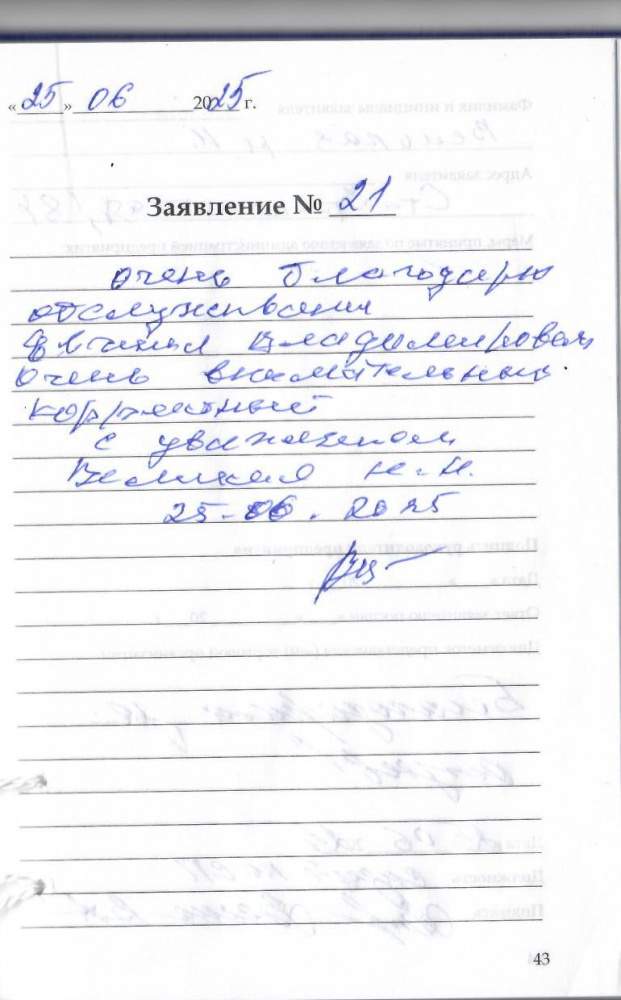 «25» 06 2025 г.
Заявление № 21
очень благодарю
обслуживания
Владимировам
очень внимательный.
корректный
с уважением
Великая Н.Н.
25-06. 2025
43